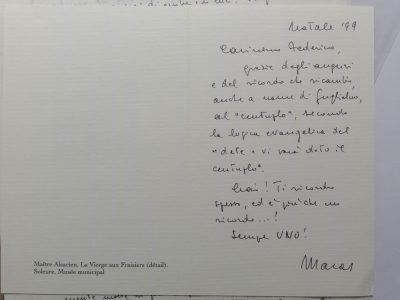 Natale '99
Carissimo Federico,
grazie degli auguri
e del ricordo che ricambio,
anche a nome di Guglielmo,
al "centuplo", secondo
la logica evangelica del
"date e vi sarà dato il
centuplo".
Ciao! Ti ricordo
spesso, ed è più che un
ricordo...!
Sempre UNO!
Maître Alsacien, La Vierge aux Fraisiers (détail).
Soleure, Musée municipal